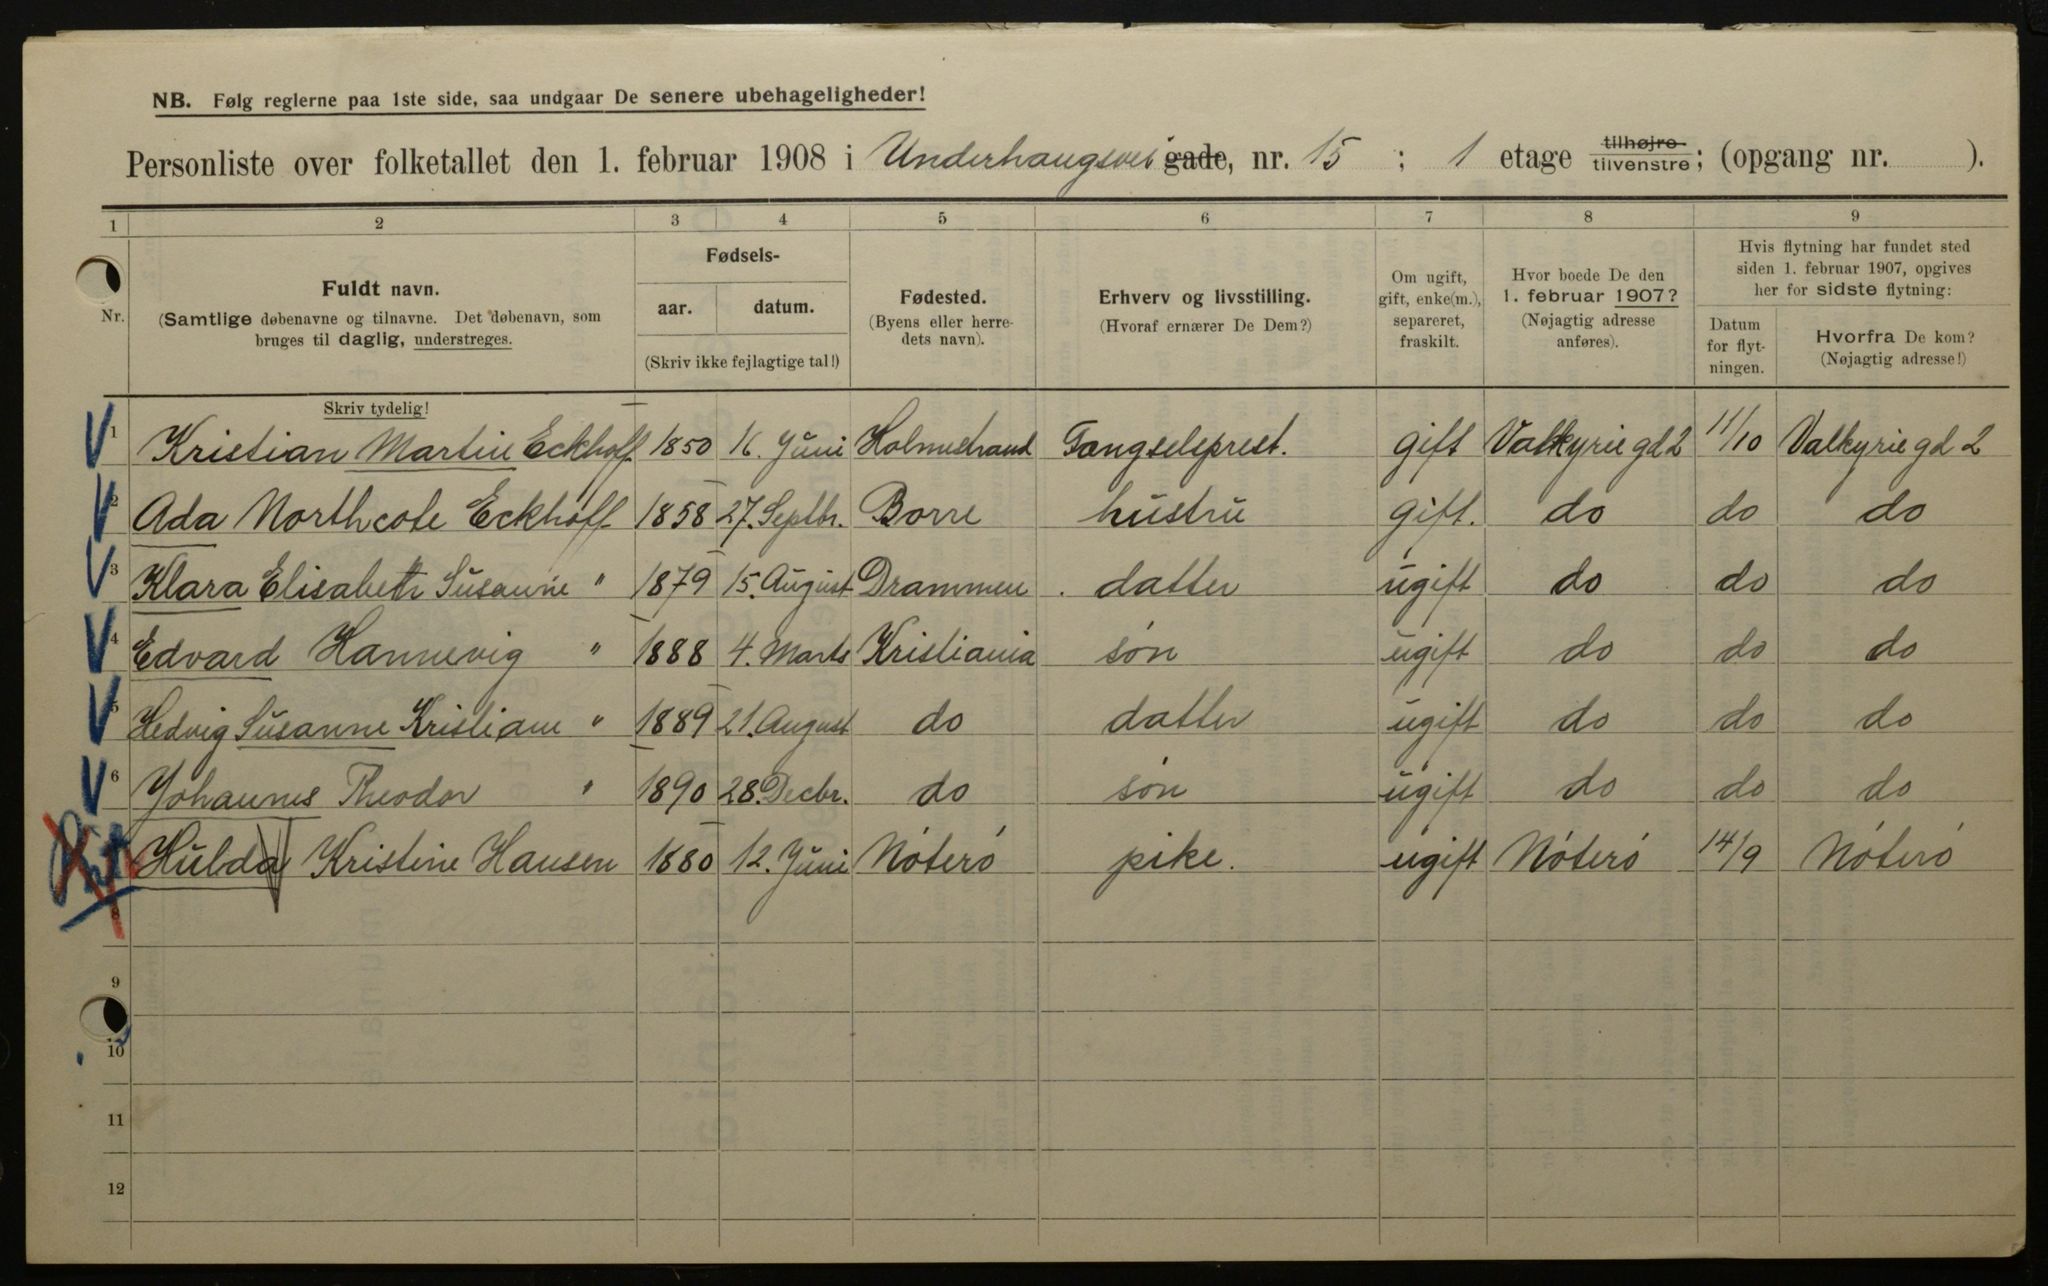 NB. Følg reglerne paa 1ste side, saa undgaar De senere ubehageligheder!
Personliste over folketallet den 1. februar 1908 i Underhaugsvei gade, nr. 15 ; 1 etage tilhøjre tilvenstre; (opgang nr. ).
1 2 3 4 5 6 7 8 9
Nr.
Fuldt navn.
(Samtlige døbenavne og tilnavne. Det døbenavn, som
bruges til daglig, understreges.
Skriv tydelig!
Fødsels-
aar. datum.
(Skriv ikke fejlagtige tal!)
Fødested.
(Byens eller herre-
dets navn).
Erhverv og livsstilling.
(Hvoraf ernærer De Dem?)
Om ugift,
gift, enke(m.),
separeret,
fraskilt.
Hvor boede De den
1. februar 1907?
(Nøjagtig adresse
anføres).
Hvis flytning har fundet sted
siden 1. februar 1907, opgives
her for sidste flytning:
Datum
for flyt-
ningen.
Hvorfra De kom?
(Nøjagtig adresse!)
1 Kristian Martin Eckhoff 1850 16. Juni Holmestrand Fangselsprest. gift Valkyrie gd 2 11/10 Valkyrie gd 2
2 Ada Northcote Eckhoff 1858 27. Septbr. Borre hustru gift. do do do
3 Klara Elisabeth Susanne " 1879 15. August Drammen datter ugift do do do
4 Edvard Hannevig " 1888 4. Marts Kristiania søn ugift do do do
5 Hedvig Susanne Kristiane " 1889 21. August do datter ugift do do do
6 Johannes Theodor " 1890 28. Decbr. do søn ugift do do do
Hulda Kristine Hansen 1880 12. Juni Nöterö pike. ugift Nöterö 14/9 Nöterö
8
9
10
11
12